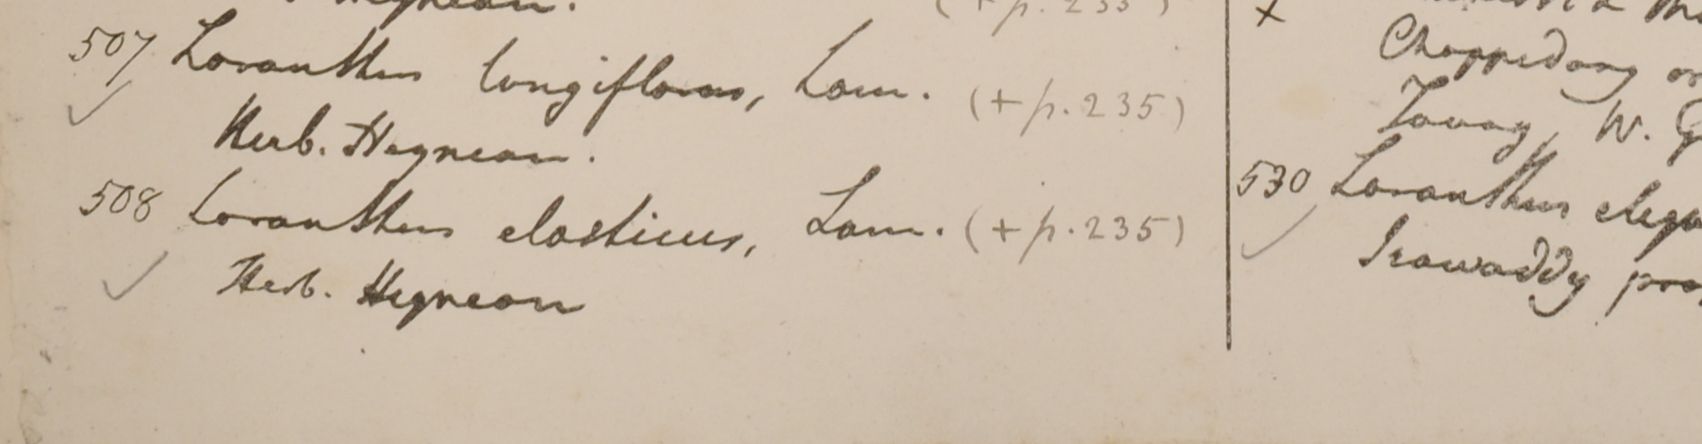 Heyneau. (+p. 235)
507 Loranthus longiflorus, Lam. (+p.235)
Herb. Heyneau.
508 Loranthus elasticus, Lam. (+p.235)
Herb. Heyneau
x
Choppedong
Tavoy, W. G
530 Loranthus elega
Irawaddy pro